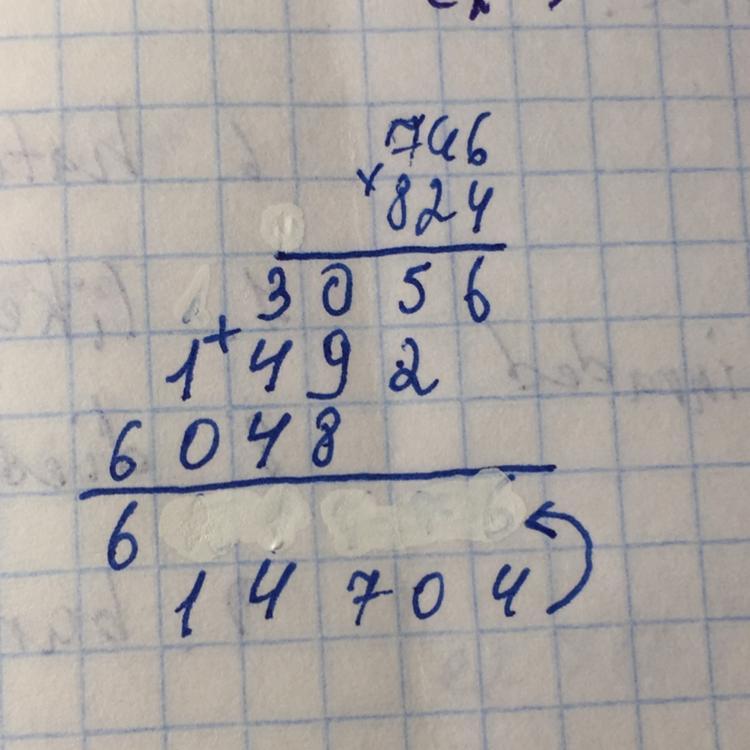 746
× 824
3056
+ 1492
6048
6
14704